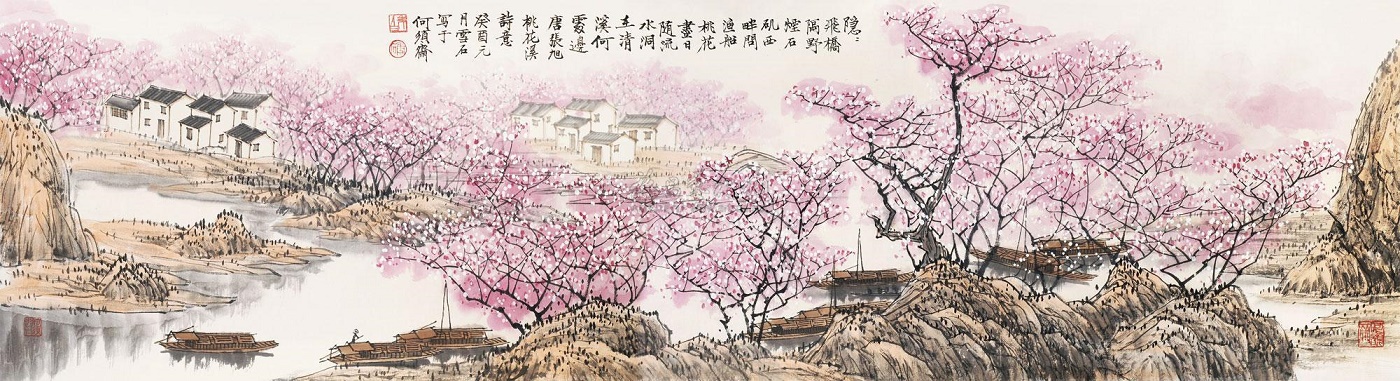 隐〻
飛橋
隔野
煙石
矶西
畔問
渔船
桃花
盡日
随流
水洞
在清
溪何
處邊
唐張旭
桃花溪
詩意
癸酉元
月雪石
写于
何須齋